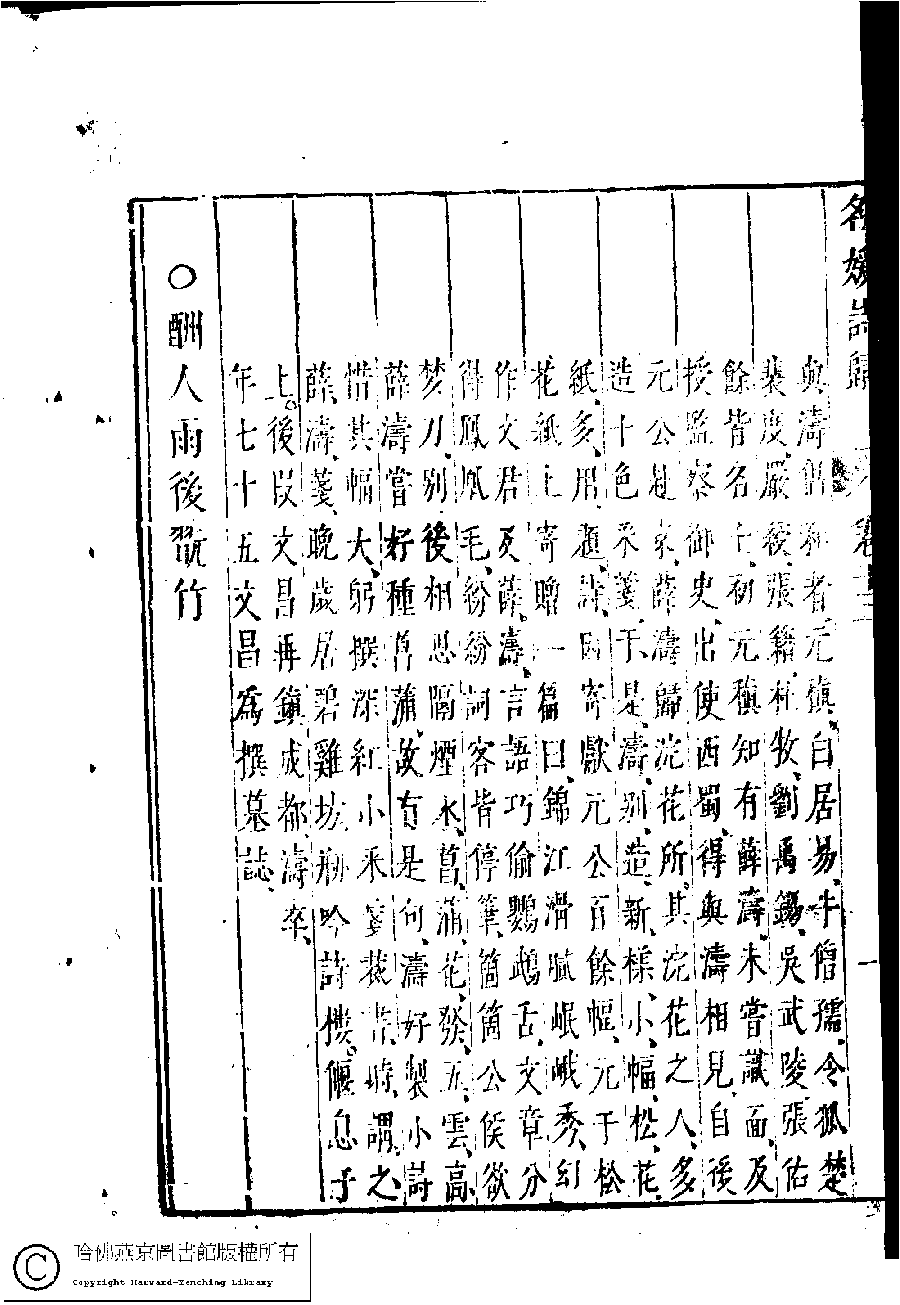 名媛詩歸 卷十三 一
與濤倡和者元稹、白居易、牛僧孺、令狐楚、
裴度、嚴綬、張籍、杜牧、劉禹錫、吳武陵、張佑、
餘皆名士、初元稹知有薛濤、未嘗識面、及
授監察御史、出使西蜀、得與濤相見、自後
元公赴京、薛濤歸浣花所、其浣花之人、多
造十色采箋、于是濤別造新樣、小幅松花
紙、多用題詩、因寄獻元公百餘幅、元于松
花紙上寄贈一篇曰、錦江滑膩岷峨秀、幻
作文君及薛濤、言語巧偷鸚鵡舌、文章分
得鳳凰毛、紛紛詞客皆停筆、箇箇公侯欲
夢刀、別後相思隔煙水、菖蒲花發五雲高、
薛濤嘗好種菖蒲、故有是句、濤好製小詩
惜其幅大、躬撰深紅小采箋裁書、時謂之
薛濤箋、晚歲居碧雞坊、剏吟詩樓、偃息于
上。後段文昌再鎮成都、濤卒、
年七十五、文昌爲撰墓誌、
○酬人雨後翫竹
© 哈佛燕京圖書館版權所有
Copyright Harvard-Yenching Library